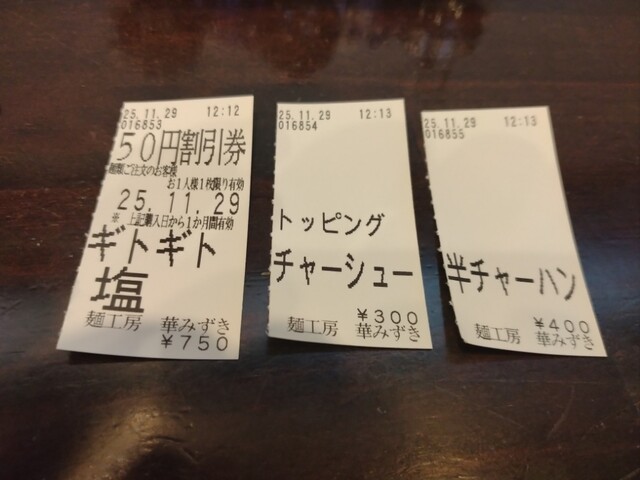 25.11.29 12:12
016853
50円割引券
麺類ご注文のお客様
お1人様1枚限り有効
25.11.29
※ 上記購入日から1か月間有効
ギトギト
塩
麺工房 華みずき
¥750
25.11.29 12:13
016854
トッピング
チャーシュー
¥300
麺工房 華みずき
25.11.29 12:13
016855
半チャーハン
¥400
麺工房 華みずき